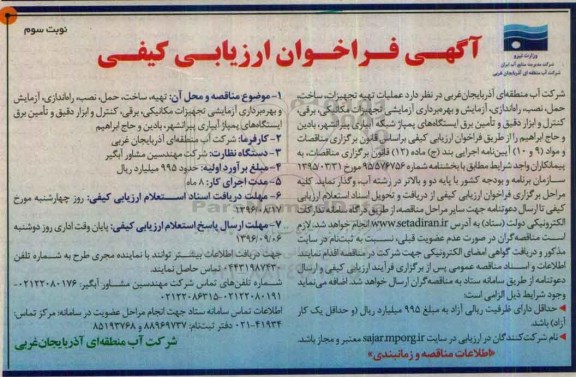 نوبت سوم
آگهی فراخوان ارزیابی کیفی
وزارت نیرو
شرکت مدیریت منابع آب ایران
شرکت آب منطقه ای آذربایجان غربی
شرکت آب منطقه‌ای آذربایجان‌غربی در نظر دارد عملیات تهیه تجهیزات، ساخت،
حمل، نصب، راه‌اندازی، آزمایش و بهره‌برداری آزمایشی تجهیزات مکانیکی، برقی،
کنترل و ابزار دقیق و تأمین برق ایستگاه‌های پمپاژ شبکه آبیاری پیرانشهر، بادین
و حاج ابراهیم را از طریق فراخوان ارزیابی کیفی براساس قانون برگزاری مناقصات
و مواد (۹ و ۱۰) آیین‌نامه اجرایی بند (ج) ماده (۱۲) قانون برگزاری مناقصات، به
پیمانکاران واجد شرایط مطابق با بخشنامه شماره ۹۵/۵۷۶۷۵۶ مورخ ۱۳۹۵/۰۳/۳۱
سازمان برنامه و بودجه کشور با پایه دو و بالاتر در رشته آب، واگذار نماید. کلیه
مراحل برگزاری فراخوان ارزیابی کیفی از دریافت و تحویل اسناد استعلام ارزیابی
کیفی تا ارسال دعوتنامه جهت سایر مراحل مناقصه، از طریق درگاه سامانه تدارکات
الکترونیکی دولت (ستاد) به آدرس www.setadiran.ir انجام خواهد شد. لازم
است مناقصه‌گران در صورت عدم عضویت قبلی، نسبت به ثبت‌نام در سایت
مذکور و دریافت گواهی امضای الکترونیکی جهت شرکت در مناقصه اقدام نمایند.
اطلاعات و اسناد مناقصه عمومی پس از برگزاری فرآیند ارزیابی کیفی و ارسال
دعوتنامه از طریق سامانه ستاد به مناقصه‌گران ارسال خواهد شد. اضافه می‌نماید
وجود شرایط ذیل الزامی است:
حداقل دارای ظرفیت ریالی آزاد به مبلغ ۹۹۵ میلیارد ریال (و حداقل یک کار
آزاد) باشد.
نام شرکت‌کنندگان در ارزیابی در سایت sajar.mporg.ir معتبر و مجاز باشد.
«اطلاعات مناقصه و زمانبندی»
۱- موضوع مناقصه و محل آن: تهیه، ساخت، حمل، نصب، راه‌اندازی، آزمایش
و بهره‌برداری آزمایشی تجهیزات مکانیکی، برقی، کنترل و ابزار دقیق و تأمین برق
ایستگاه‌های پمپاژ آبیاری پیرانشهر، بادین و حاج ابراهیم
۲- کارفرما: شرکت آب منطقه‌ای آذربایجان غربی
۳- دستگاه نظارت: شرکت مهندسین مشاور آبگیر
۴- مبلغ برآورد اولیه: حدود ۹۹۵ میلیارد ریال
۵- مدت اجرای کار: ۸ ماه
۶- مهلت دریافت اسناد استعلام ارزیابی کیفی: روز چهارشنبه مورخ
۱۳۹۶/۰۸/۱۷
۷- مهلت ارسال پاسخ استعلام ارزیابی کیفی: پایان وقت اداری روز دوشنبه
۱۳۹۶/۰۹/۰۶
جهت دریافت اطلاعات بیشتر توانند با نماینده مجری طرح به شماره تلفن
۰۴۴۳۱۹۸۷۴۳۰ تماس حاصل نمایند.
شماره تلفن‌های تماس شرکت مهندسین مشاور آبگیر: ۰۲۱۲۲۰۸۰۱۷۶-
۰۲۱۲۲۰۸۰۱۹۱-۰۲۱۲۲۰۸۶۳۱۵
اطلاعات تماس سامانه ستاد جهت انجام مراحل عضویت در سامانه: مرکز تماس:
۰۲۱-۴۱۹۳۴ دفتر ثبت‌نام: ۸۸۹۶۹۷۳۷ و ۸۵۱۹۳۷۶۸
شرکت آب منطقه‌ای آذربایجان‌غربی